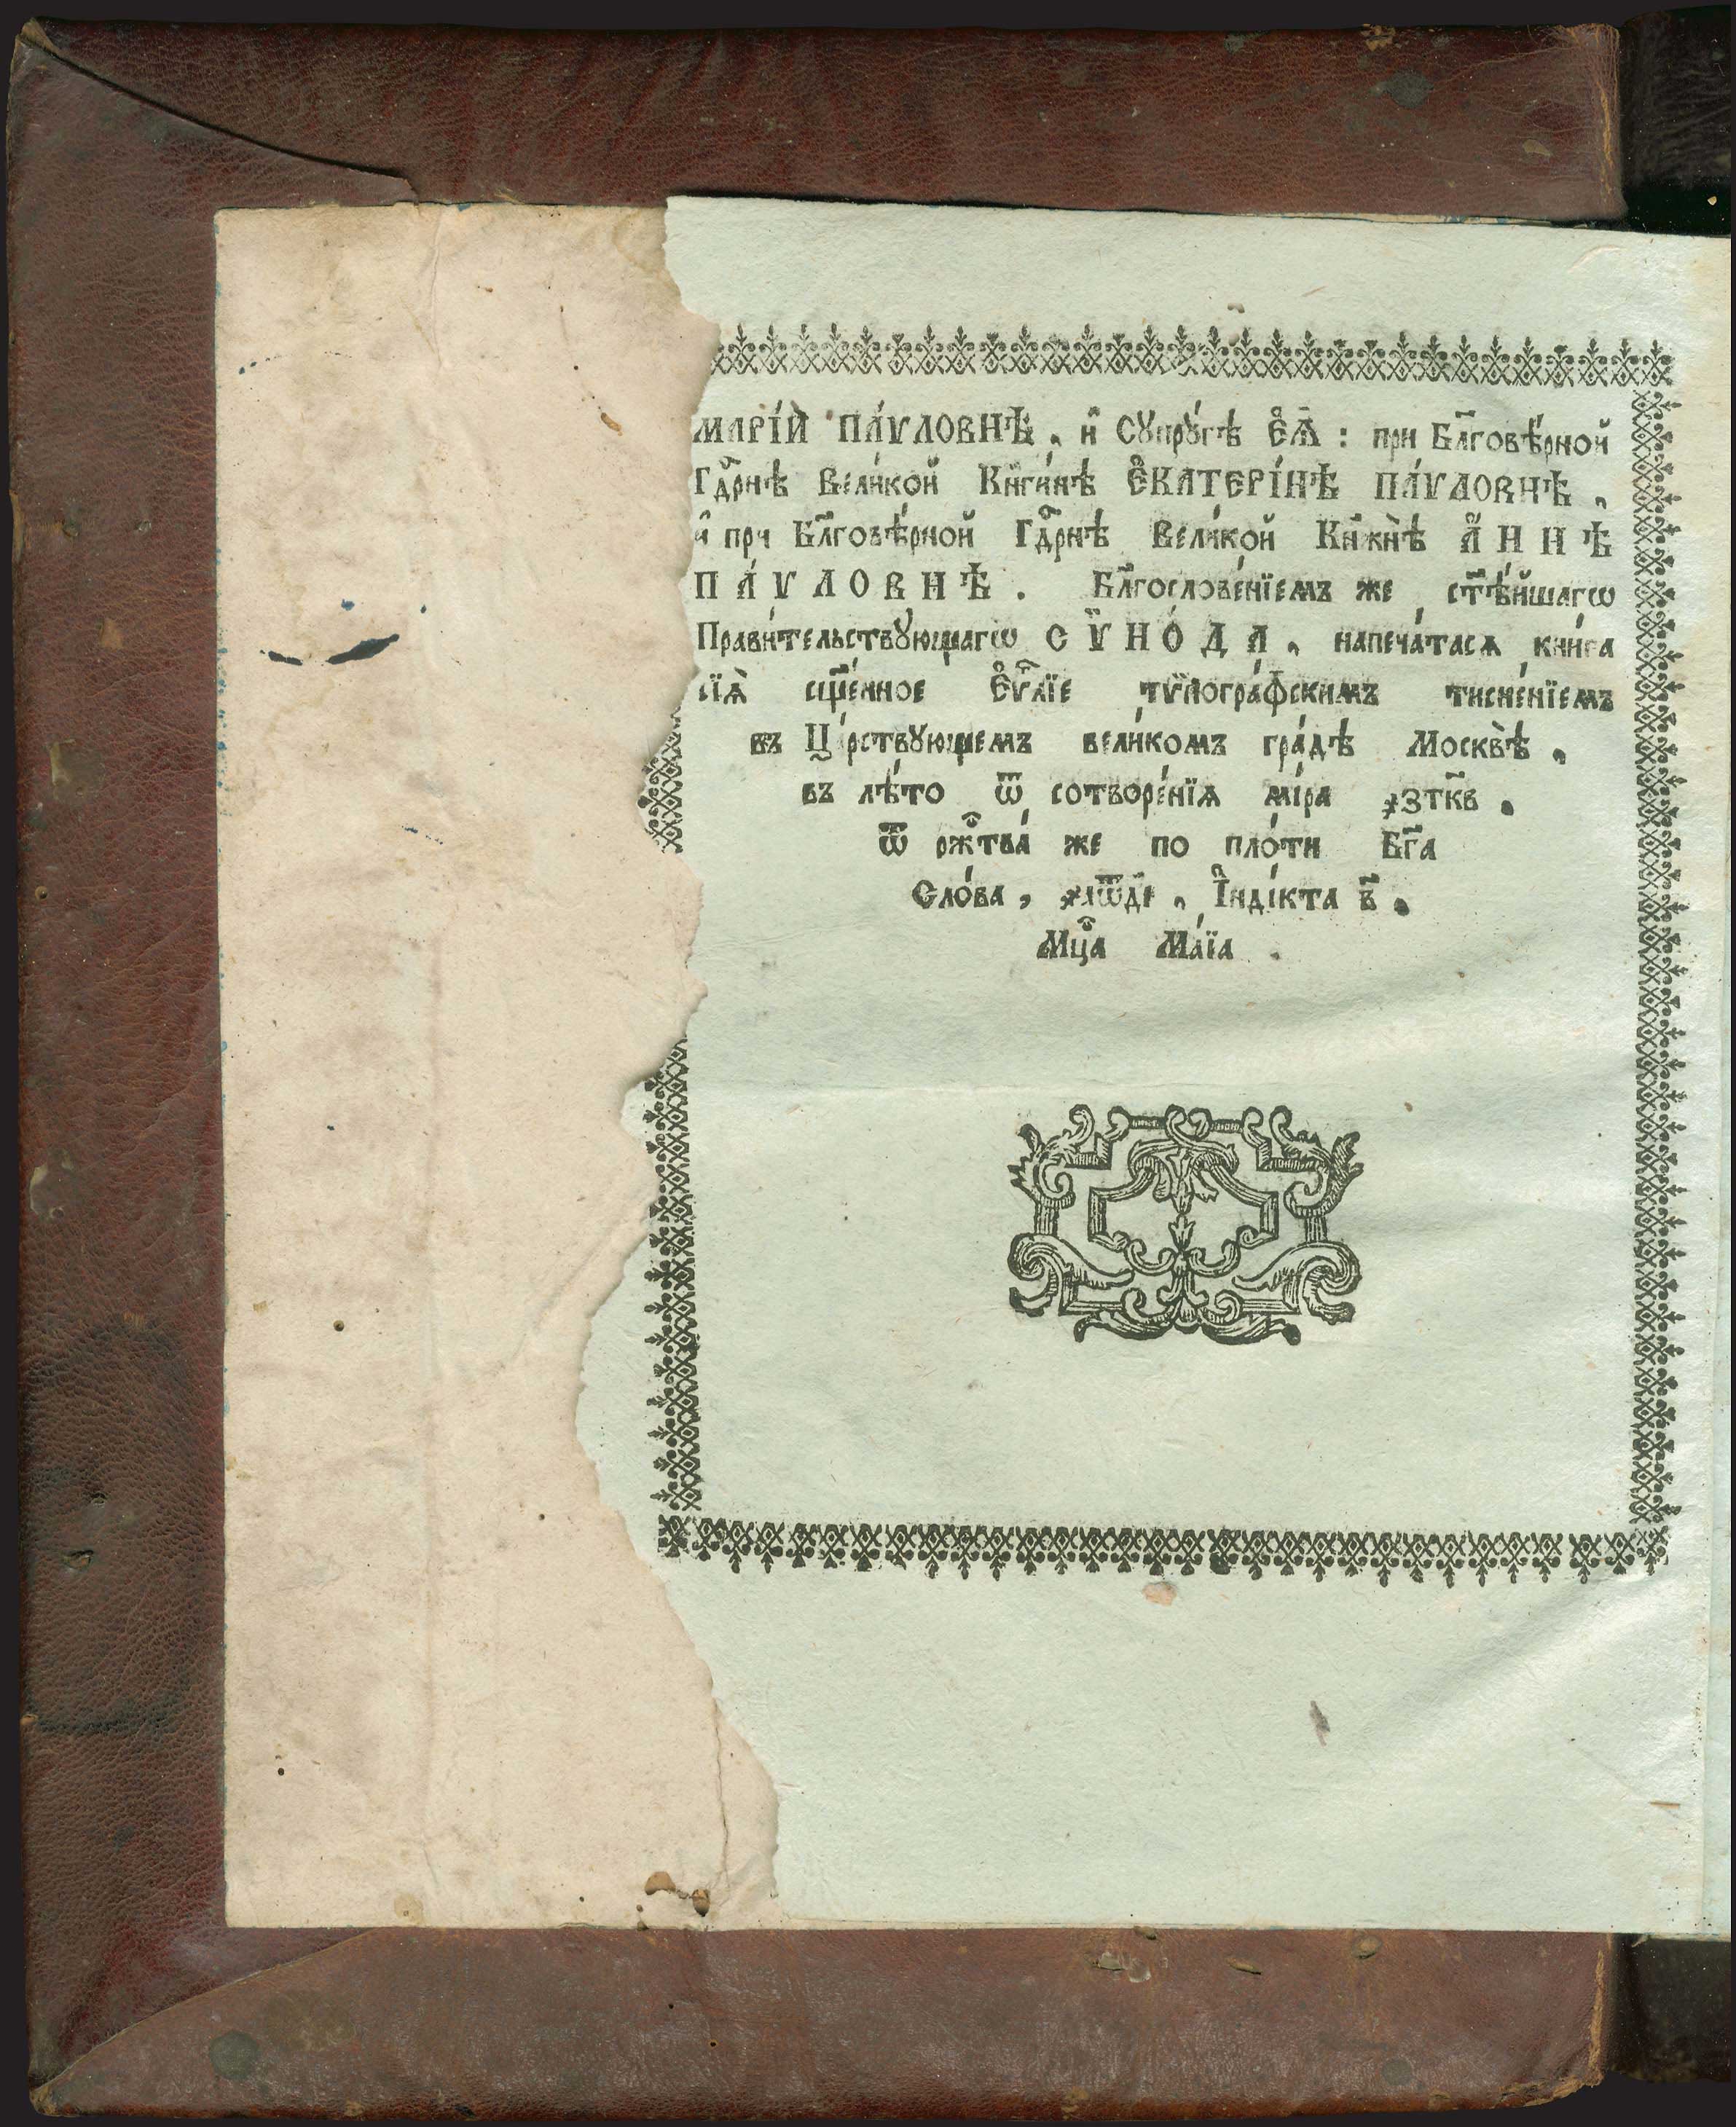 МАРІ́И ПА́ѴЛОВНѢ, и҆ Сꙋпрꙋ́гѣ Є҆Ѧ̀ : при Бл҃говѣ́рной
Гдⷭ҇рнѣ Вели́кой Кн҃ги́нѣ Є҆КАТЕРІ́НѢ ПА́ѴЛОВНѢ,
и҆ при Бл҃говѣ́рной Гдⷭ҇рнѣ Вели́кой Кн҃жнѣ̀ А҆́ННѢ
ПА́ѴЛОВНѢ. Бл҃гослове́нїемъ же ст҃ѣ́йшагѡ
Прави́тельствꙋющагѡ СѴНО́ДА, напеча́тасѧ кни́га
сїѧ̀ сщ҃е́нное Є҆ѵⷢ҇лїе тѷпогра́фскимъ тисне́нїемъ
въ Ца́рствꙋющемъ вели́комъ гра́дѣ Москвѣ̀,
въ лѣ́то ѿ сотворе́нїѧ мі́ра ҂зтк҃в.
ѿ ржⷭ҇тва́ же по пло́ти Бг҃а
Сло́ва, ҂аѿд҃і, І҆нді́кта в҃.
Мцⷭ҇а Ма́їа.